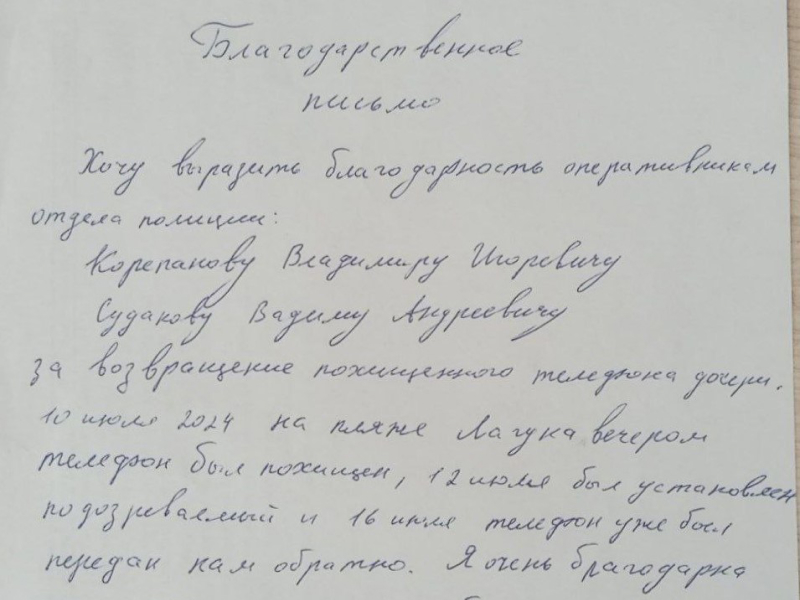 Благодарственное
письмо
Хочу выразить благодарность оперативникам
отдела полиции:
Корепанову Владимиру Игоревичу
Судакову Вадиму Андреевичу
за возвращение похищенного телефона дочери.
10 июля 2024 на пляже Лагуна вечером
телефон был похищен, 12 июля был установлен
подозреваемый и 16 июля телефон уже был
передан нам обратно. Я очень благодарна